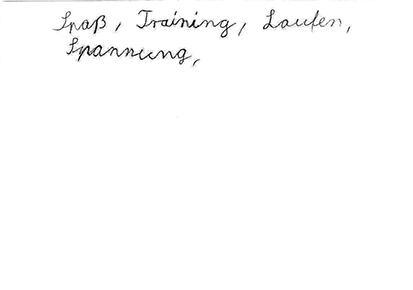 Spaß, Training, Laufen,
Spannung,